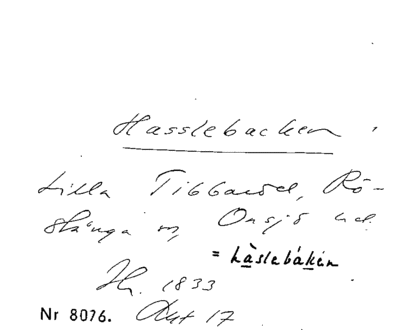 Hasslebacken
Lilla Tibbaröd, Rö-
stånga sn, Onsjö hd.
= hàslebáken
Hr. 1833
Nr 8076. Akt 17